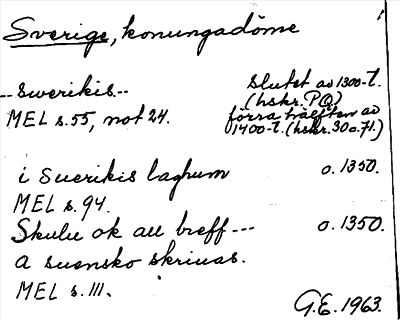 Sverige, konungadöme
--swerikis-- slutet av 1300-t.
(hskr. PQ)
MEL s.55, not 24. förra hälften av
1400-t. (hskr. 30 o. 71.)
i suerikis laghum o. 1350.
MEL s. 94.
Skulu ok all breff --- o. 1350.
a suensko skriuas.
MEL s. 111.
G.E. 1963.